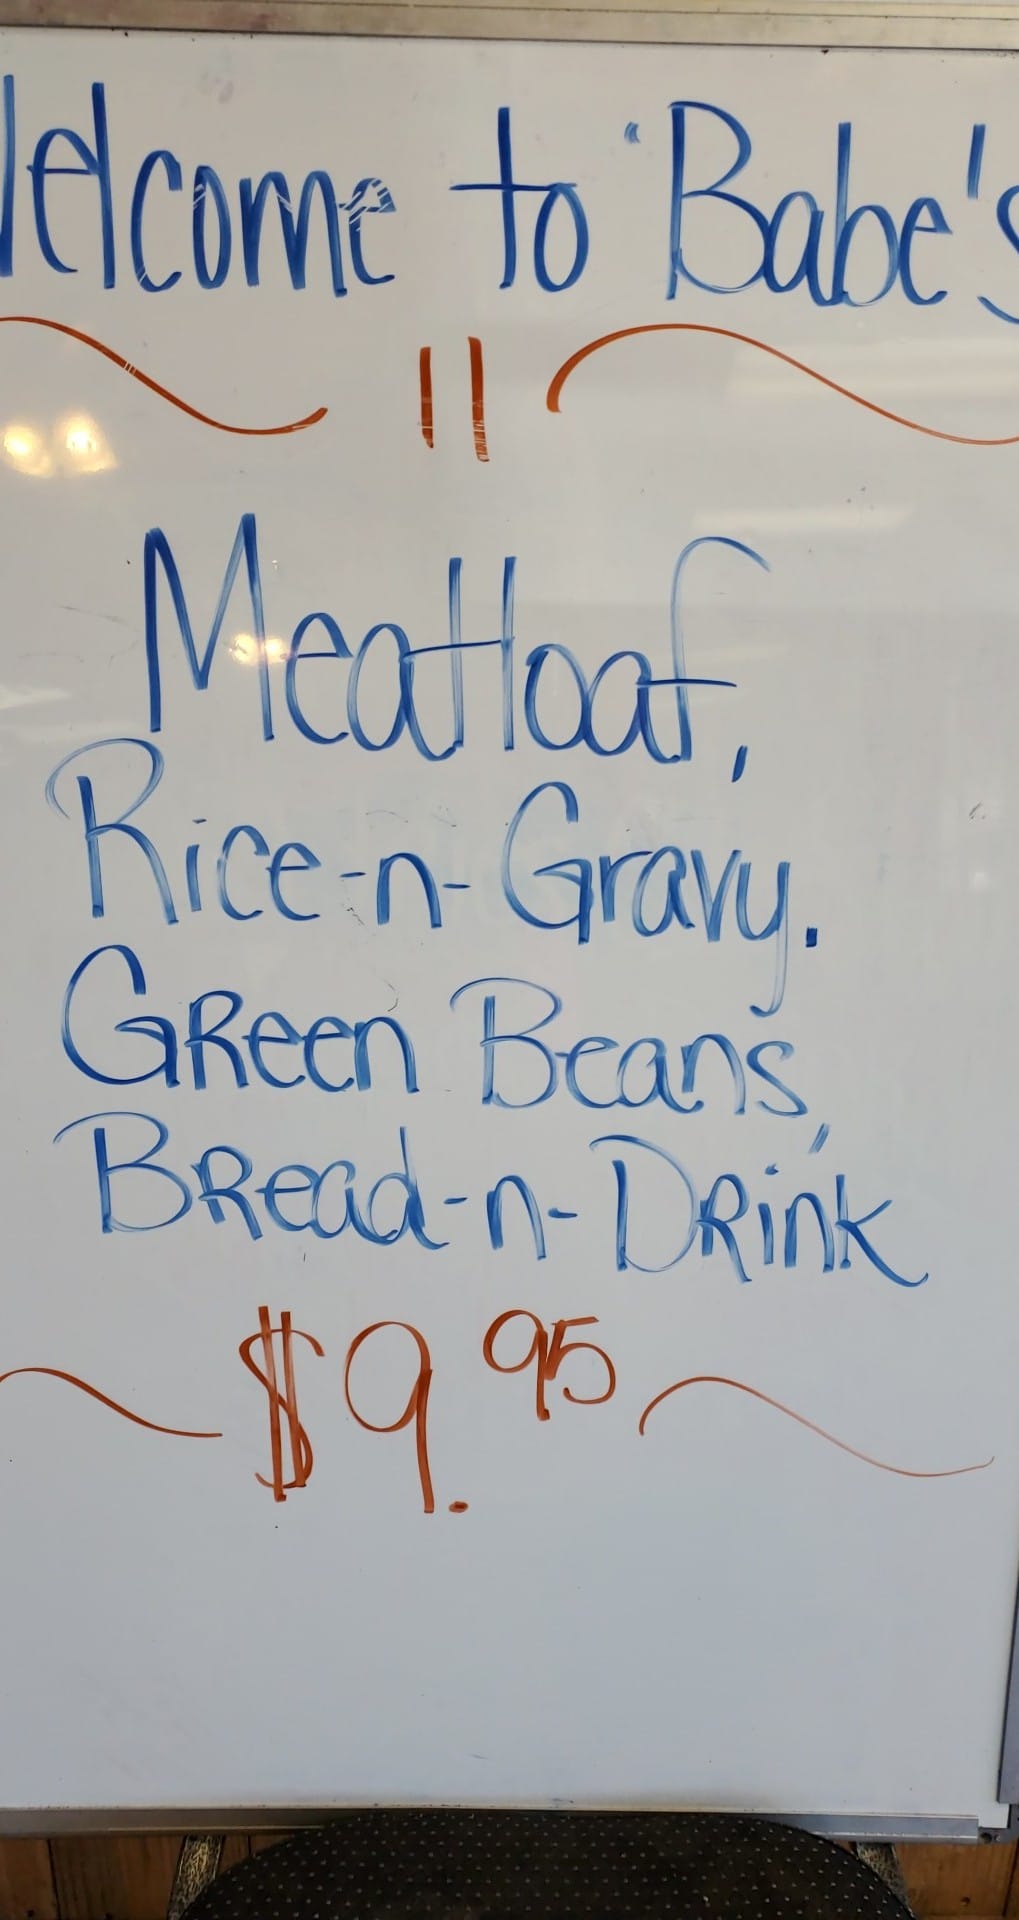 Welcome to "Babe's
11
Meatloaf,
Rice-n-Gravy.
Green Beans,
Bread-n-Drink
$9.95